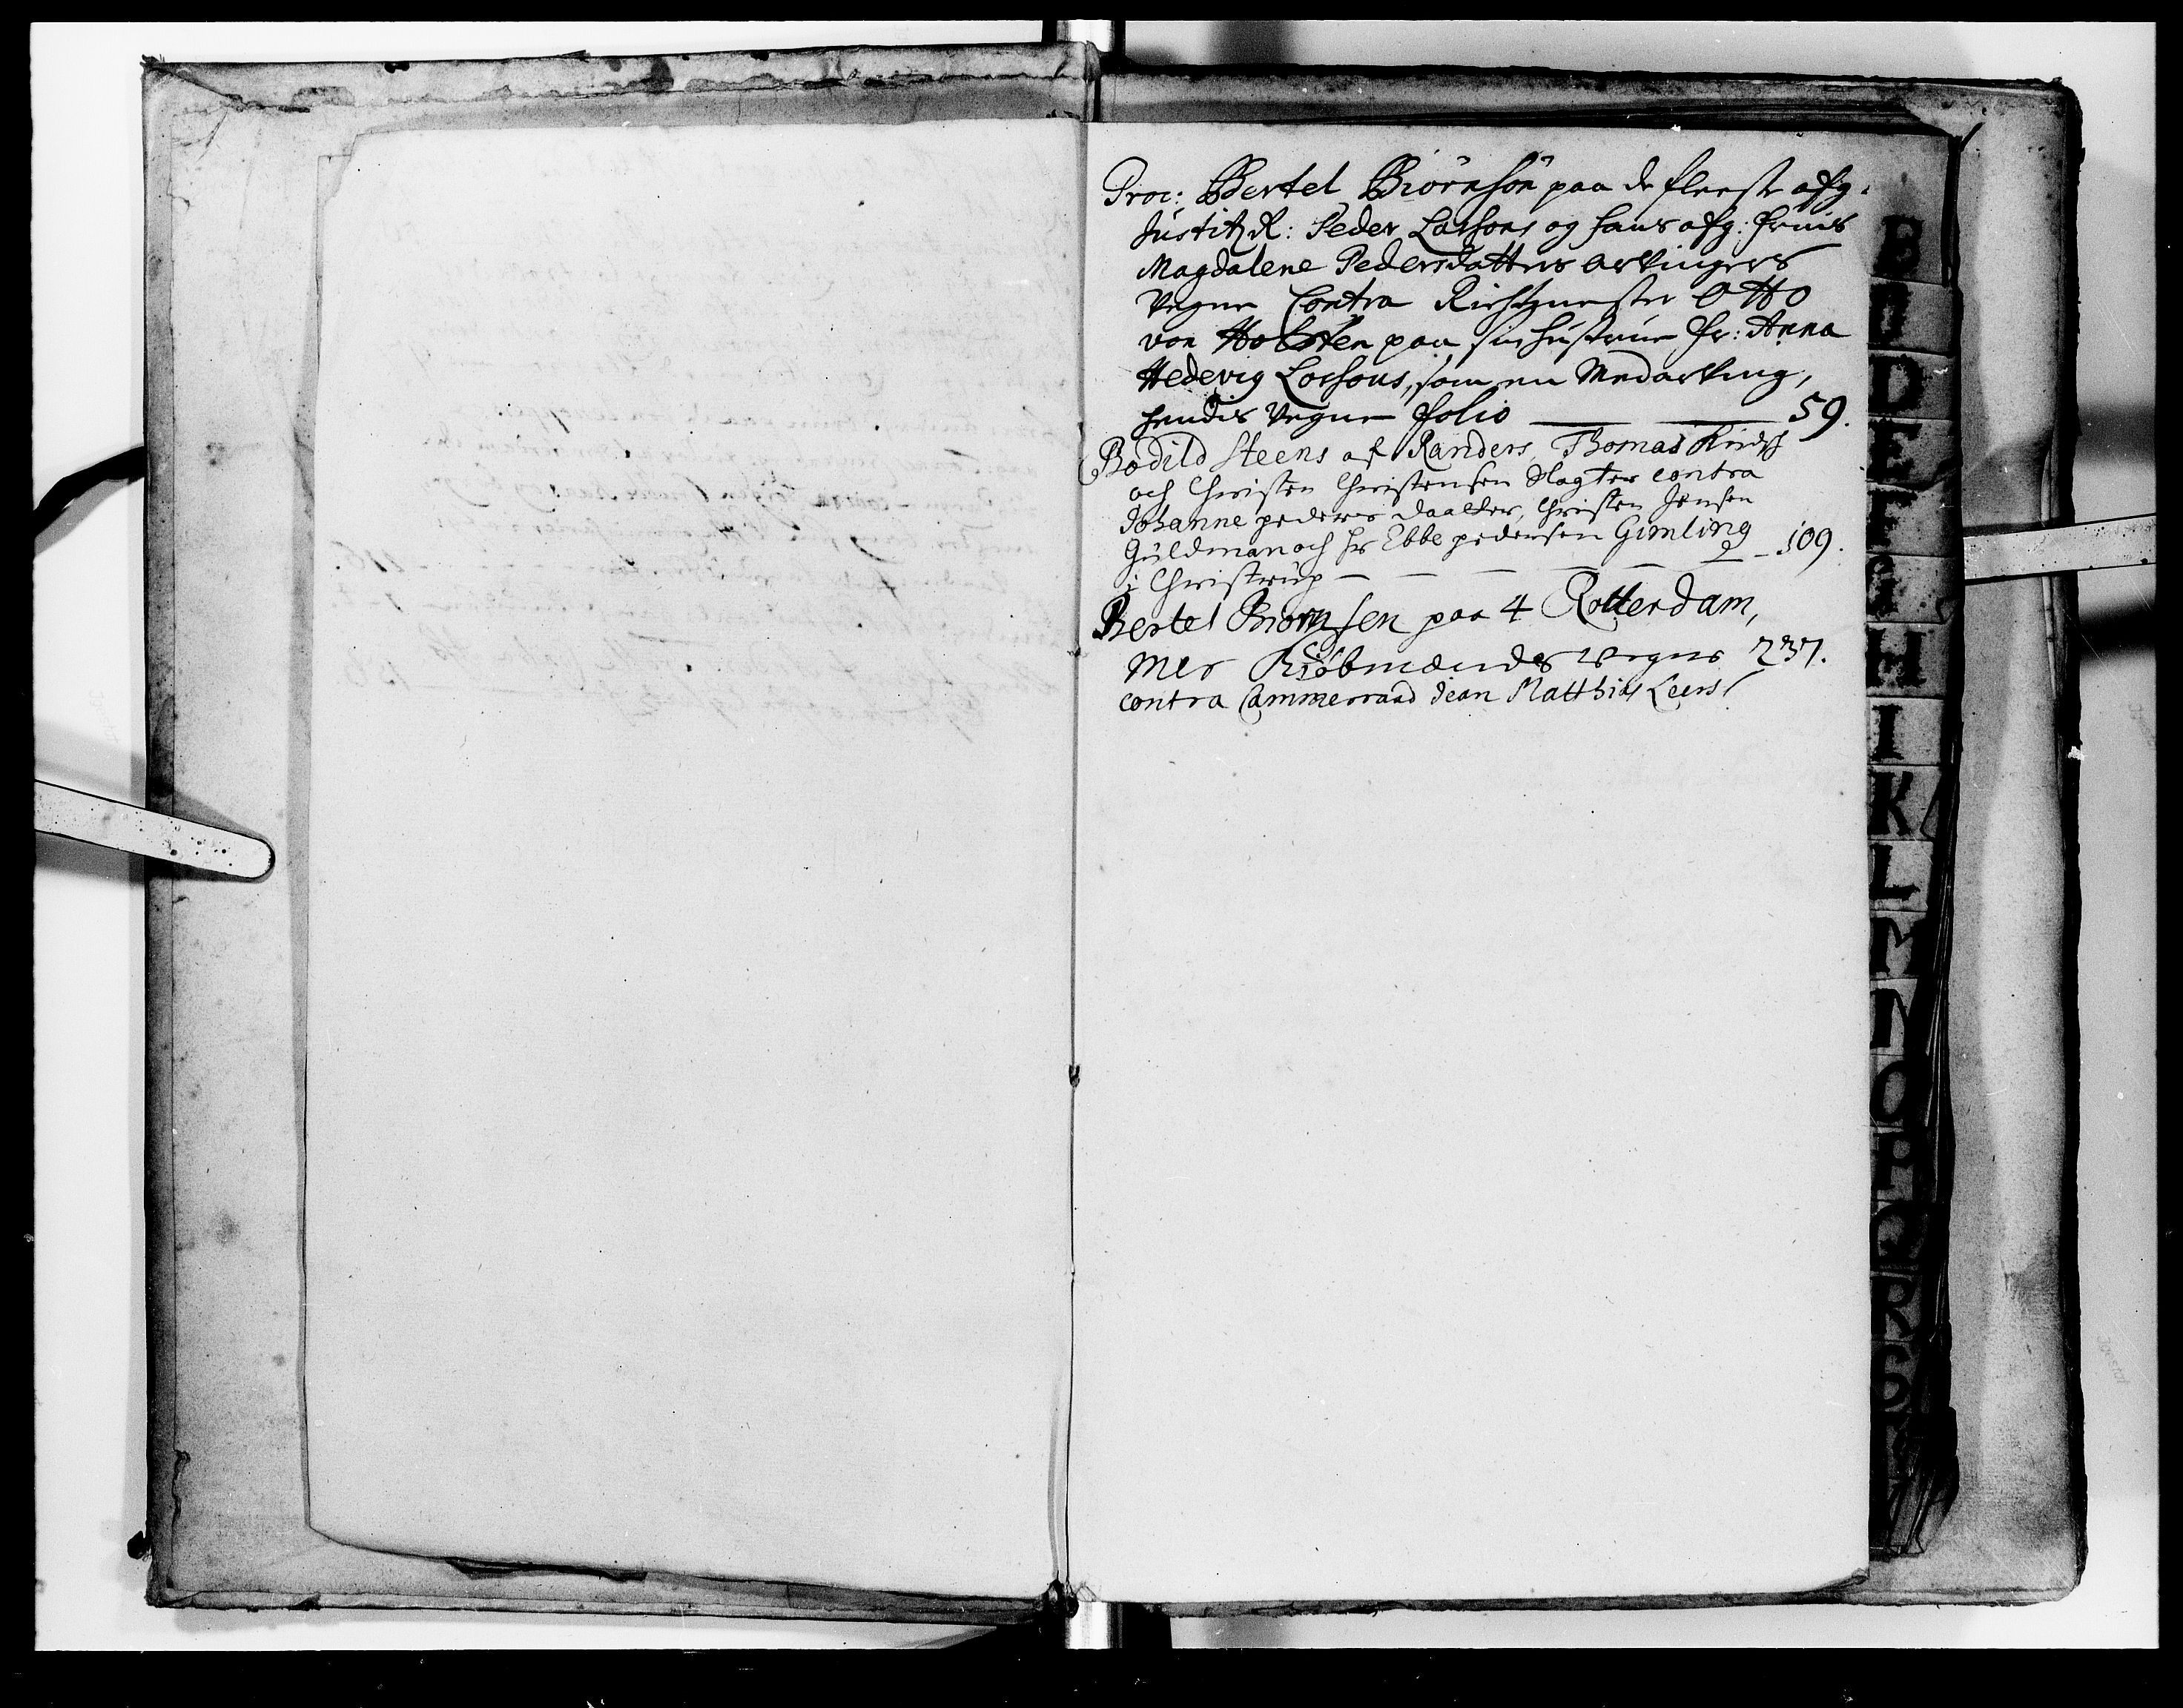 Proc: Bertel Biörnsön paa de fleeste afg.
Justitz R: Peder Lassons og hans afg: Fruis
Magdalene Pedersdatters Arvingers
Vegne Contra Richtmester Otto
von Holsten paa sin hustrue Fr: Anna
Hedevig Lassons, som en Medarving,
hendis Vegne Folio 59.
Bodild Steens af Randers, Thomas
och Christen Christensen Slagter contra
Johanne peders daatter, Christen Jensen
Guldman och Hr Ebbe pedersen Gimling
i Christrup 109.
Bertel Biornsen paa 4 Rotterdam,
mer Kiöbmænds Vegne 237.
contra Cammerraad Jean Matthias Leers
B
D
E
F
G
H
I
K
L
M
N
O
P
Q
R
S